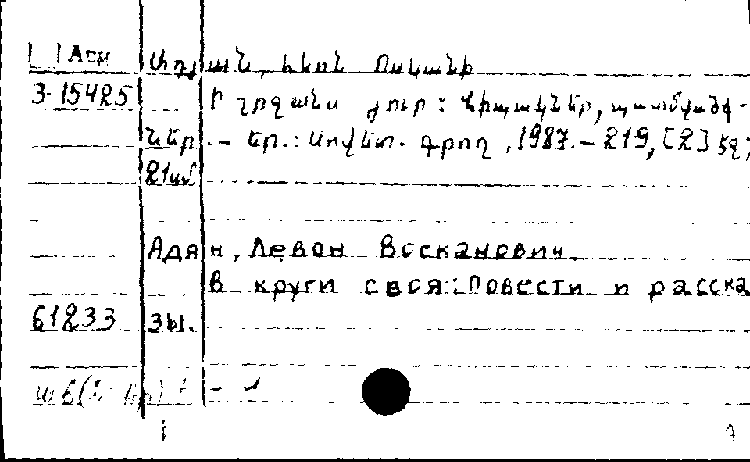 Արմ Ադյան, Լևոն Ոսկանի
3-15425 Ի շրջանս յուր: Վիպակներ, պատմվածք-
ներ. - Եր.: Սովետ. գրող, 1987. - 219, [2] էջ;
21սմ
Адян, Левон Восканович
В круги своя: Повести и расска
61233 зы.